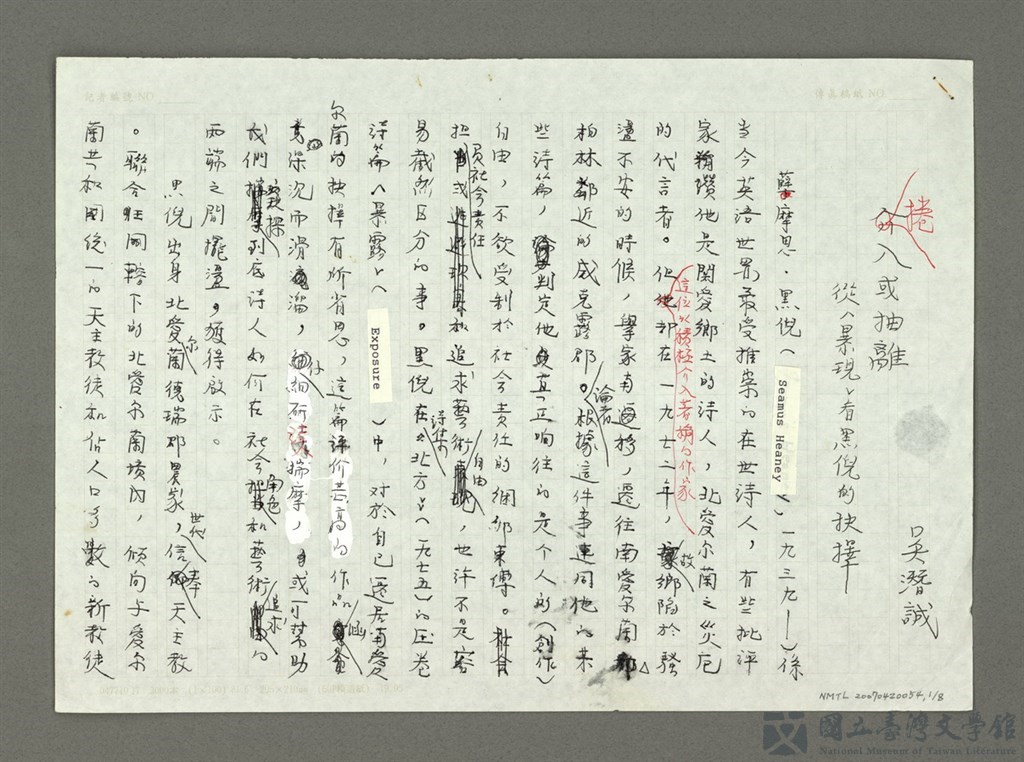 記者編號 NO.
傳真稿紙 NO.
捲
入或抽離
從〈暴現〉看黑倪的抉擇
吳潛誠
薩摩思.黑倪(Seamus Heaney)(一九三九—)係
當今英語世界最受推崇的在世詩人,有些批評
家稱讚他是關愛鄉土的詩人,北愛尔蘭之災厄
的代言者。但這位以積極介入著稱的作家在一九七二年,故鄉陷於騷
盪不安的時候,舉家南遷移,遷往南愛尔蘭
柏林鄰近的威克露郡。論者根據這件事連同他的某
些詩篇,判定他真正响往的是个人的(創作)
自由,不欲受制於社会責任的綑綁束縛。
担負社会責任或追求藝術自由,也許不是容
易截然区分的事。黑倪在詩集《北方》(一九七五)的压卷
詩篇〈暴露〉(Exposure)中,对於自己遷居南愛
尔蘭的抉擇有所省思,這篇評价甚高的作品涵
意深沉而滑溜,仔細研讀揣摩,或可幫助
我們探到底詩人如何在社会角色和藝術追求的
兩端之間擺盪,獲得啟示。
黑倪出身北愛尔蘭德瑞郡農家,世代信奉天主教
。聯合王國轄下的北愛尔蘭境內,傾向与愛尔
蘭共和國統一的天主教徒和佔人口多數的新教徒
NMTL 20070420054, 1/8
國立臺灣文學館
National Museum of Taiwan Literature